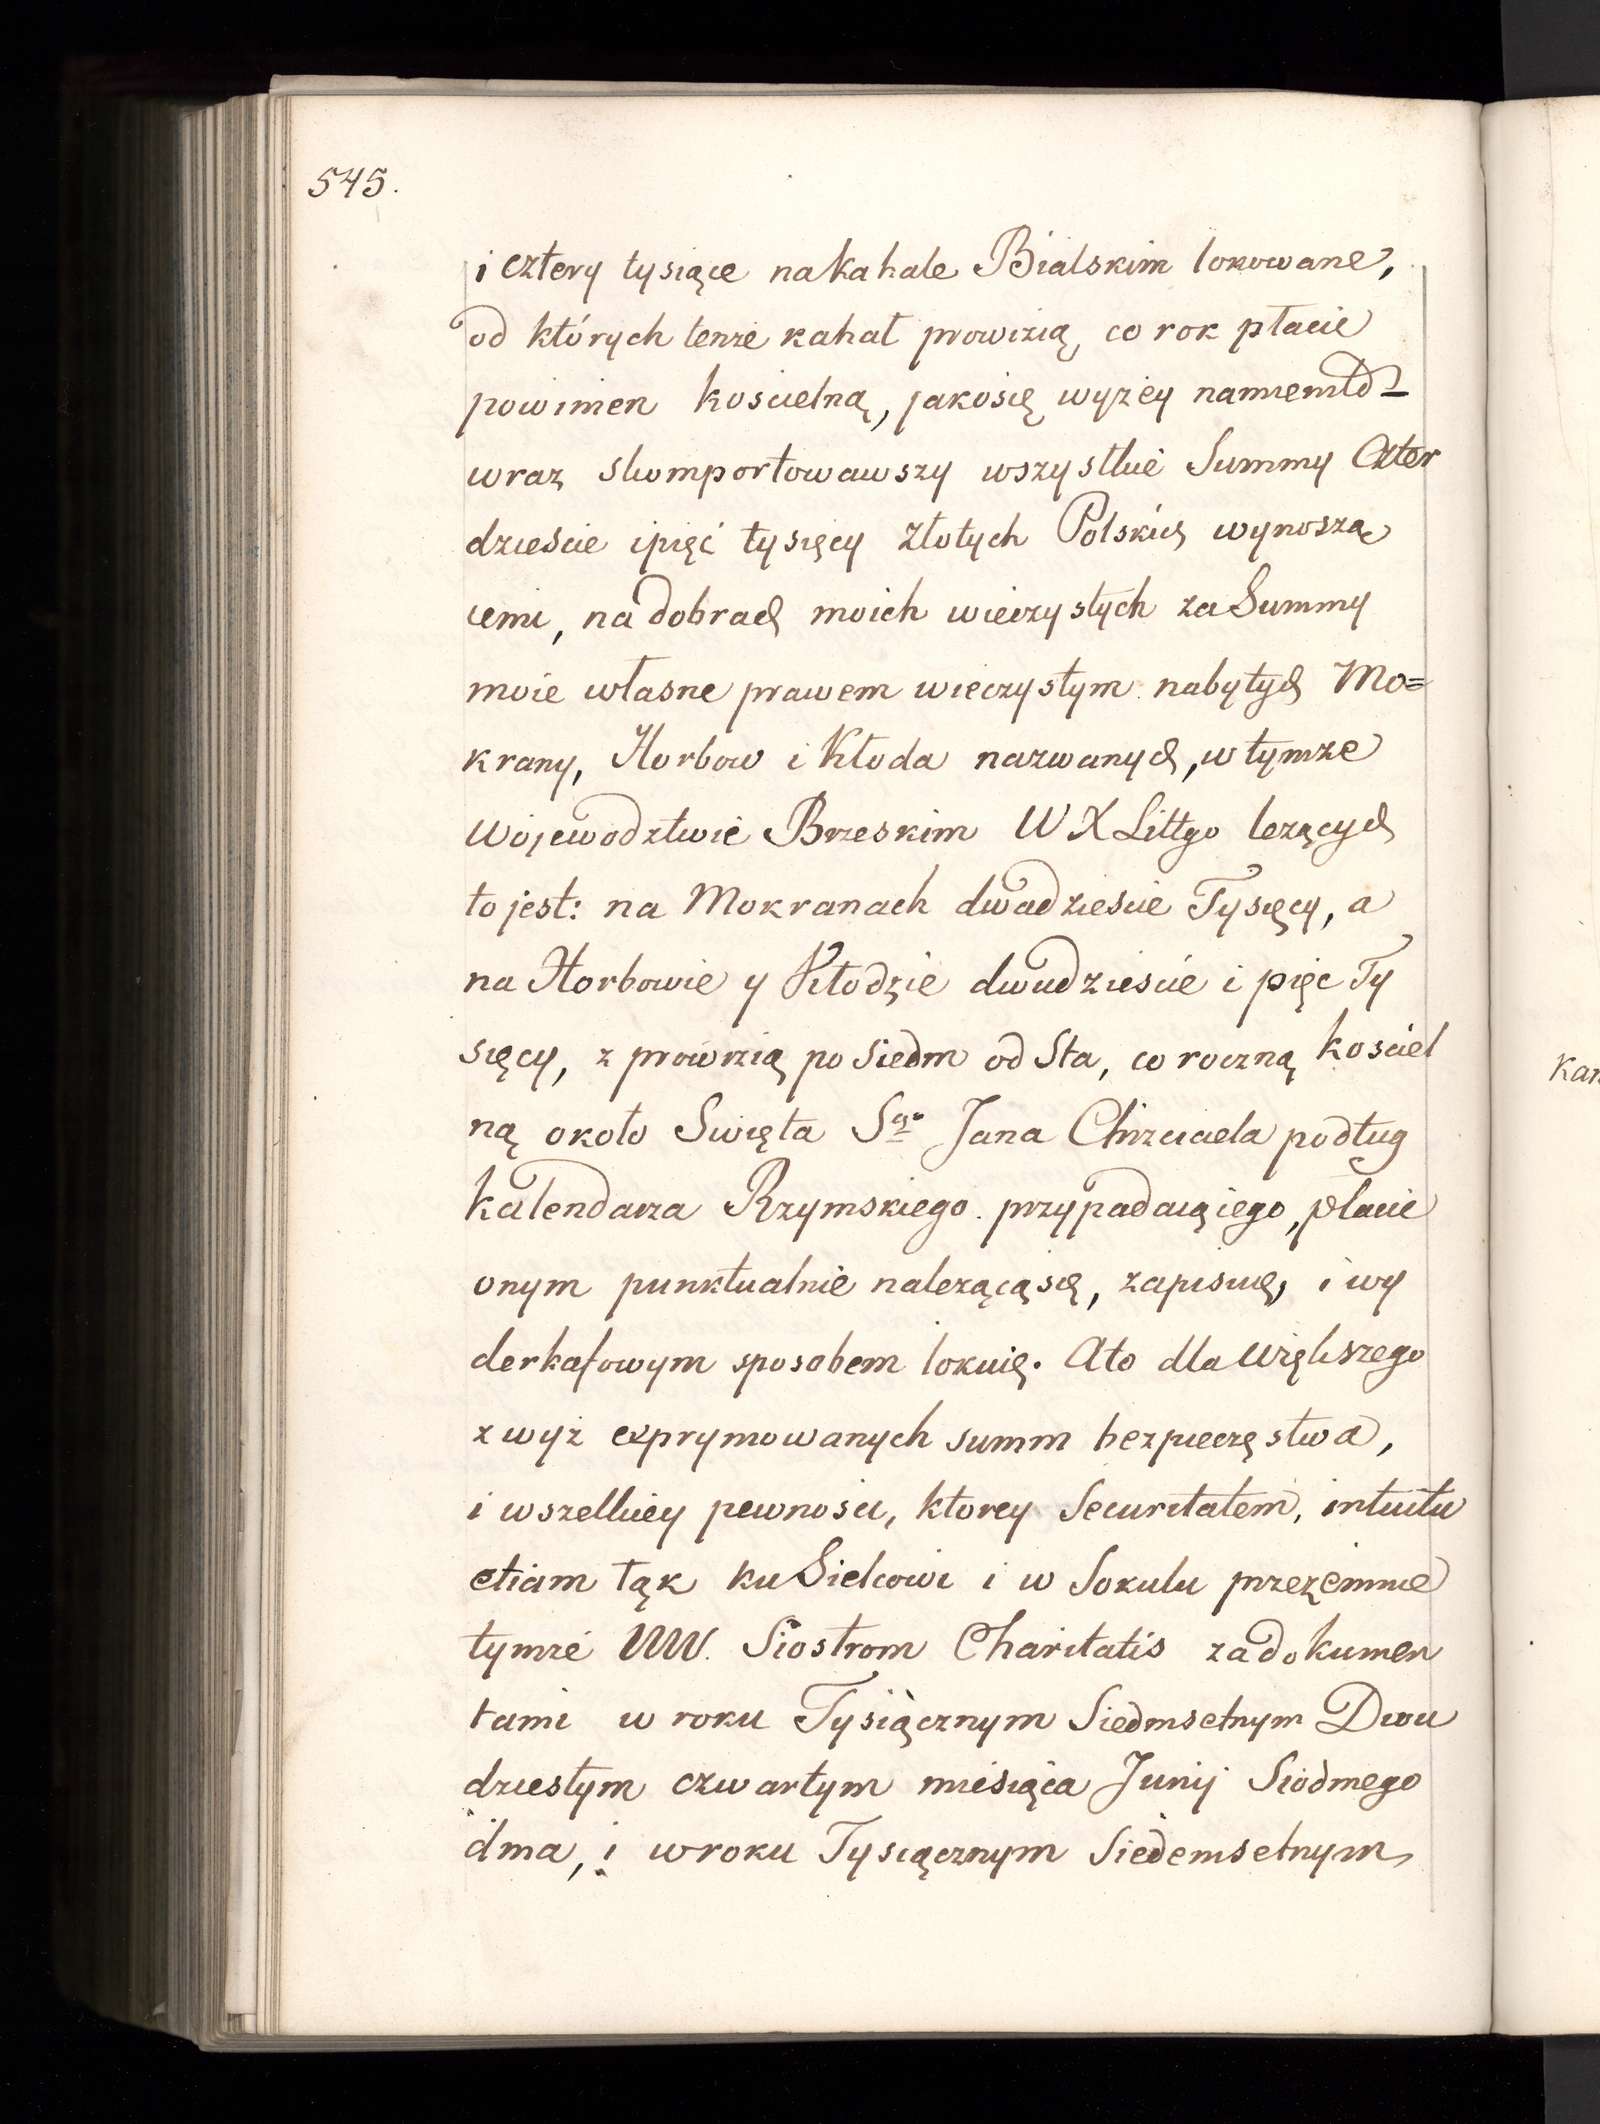 545.
i cztery tysiące na kahale Bialskim lokowane,
od których tenże kahał prowizią, co rok płacie
powinien koscielną, jako się wyżey namieniło
wraz skomportowawszy wszystkie Summy Czter
dzieście i pięć tysięcy Złotych Polskich wynoszą
cemi, na dobrach moich wieczystych za Summy
moie własne prawem wieczystym nabytych Mo=
krany, Horbow i Kłoda nazwanych, w tymże
Województwie Brzeskim W X Littgo leżących
to jest: na Mokranach dwadzieście Tysięcy, a
na Horbowie y Kłodzie dwudzieście i pięc Ty
sięcy, z prowizią po Siedm od Sta, co roczną kościel
ną około Swięta Sgo Jana Chrzciciela podług
kalendarza Rzymskiego przypadaiąiego, płacie
onym punktualnie należącą się, zapisuię, i wy
derkafowym sposobem lokuię. A to dla większego
zwyż exprymowanych summ bezpieczęstwa,
i wszelkiey pewności, ktorey Securitatem, intuitu
etiam łąk ku Sielcowi i w Sokulu przezemnie
tymże WW. Siostrom Charitatis za dokumen
tami w roku Tysiącznym Siedmsetnym Dwu
dziestym czwartym miesiąca Junij Siodmego
dnia, i w roku Tysiącznym Siedemsetnym
Kar